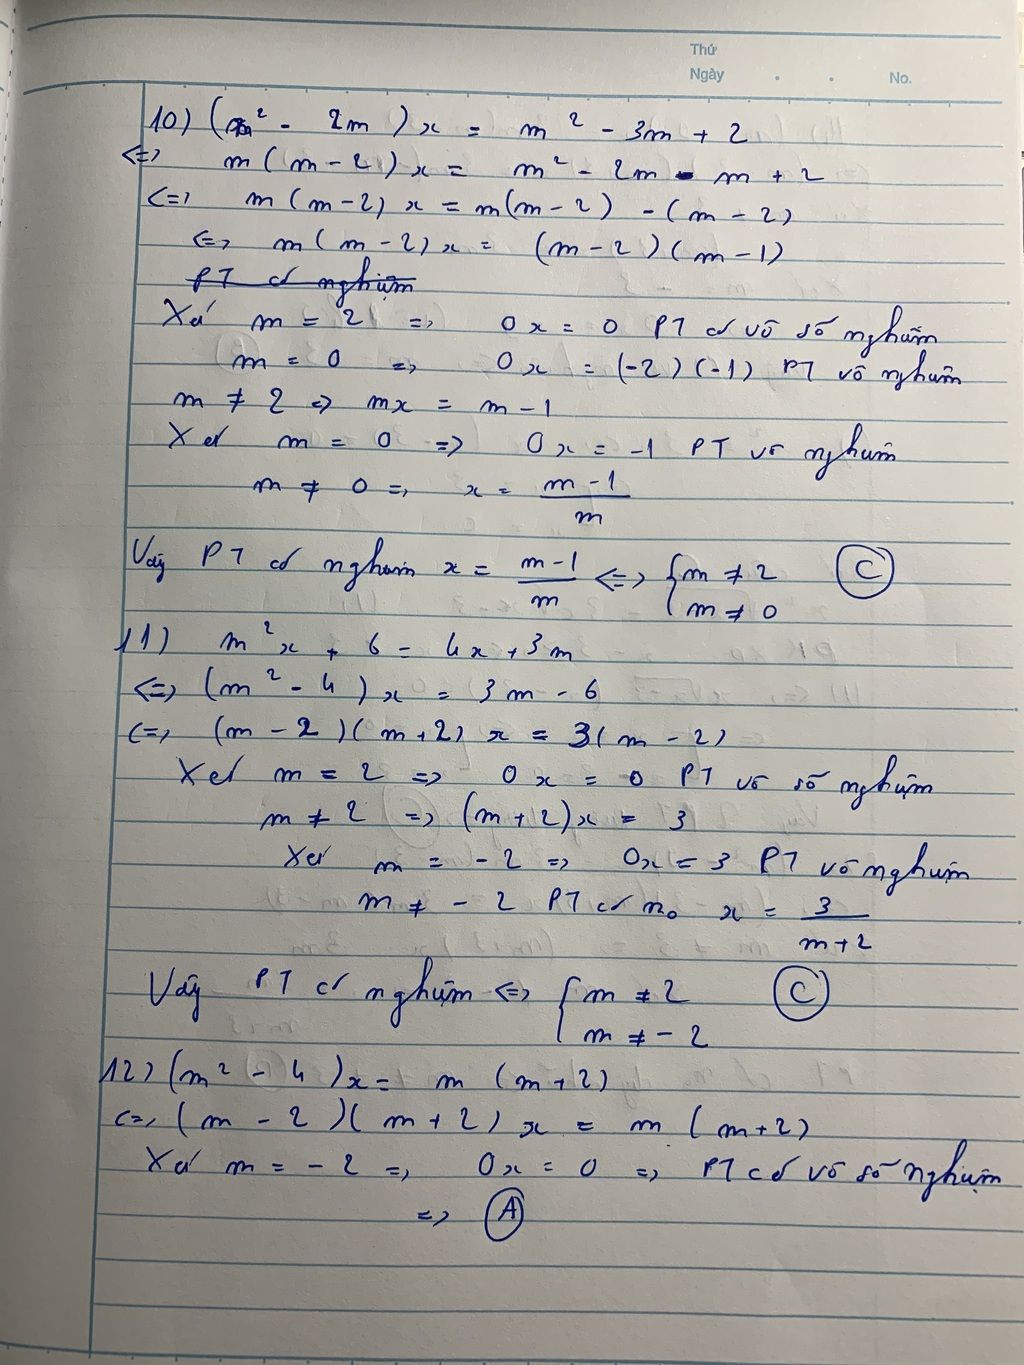 Thứ
Ngày . . No.
10) (m² - 2m) x = m² - 3m + 2
<=> m(m-2)x = m² - 2m - m + 2
<=> m(m-2)x = m(m-2) - (m-2)
<=> m(m-2)x = (m-2)(m-1)
PT có nghiệm
Xét m = 2 => 0x = 0 PT có vô số nghiệm
m = 0 => 0x = (-2)(-1) PT vô nghiệm
m ≠ 2 => mx = m-1
Xét m = 0 => 0x = -1 PT vô nghiệm
m ≠ 0 => x = (m-1)/m
Vậy PT có nghiệm x = (m-1)/m <=> { m ≠ 2 (C)
m ≠ 0
11) m²x + 6 = 4x + 3m
<=> (m² - 4)x = 3m - 6
<=> (m-2)(m+2)x = 3(m-2)
Xét m = 2 => 0x = 0 PT vô số nghiệm
m ≠ 2 => (m+2)x = 3
Xét m = -2 => 0x = 3 PT vô nghiệm
m ≠ -2 PT có n₀ x = 3/(m+2)
Vậy PT có nghiệm <=> { m ≠ 2 (C)
m ≠ -2
12) (m² - 4)x = m(m+2)
<=> (m-2)(m+2)x = m(m+2)
Xét m = -2 => 0x = 0 => PT có vô số nghiệm
=> (A)